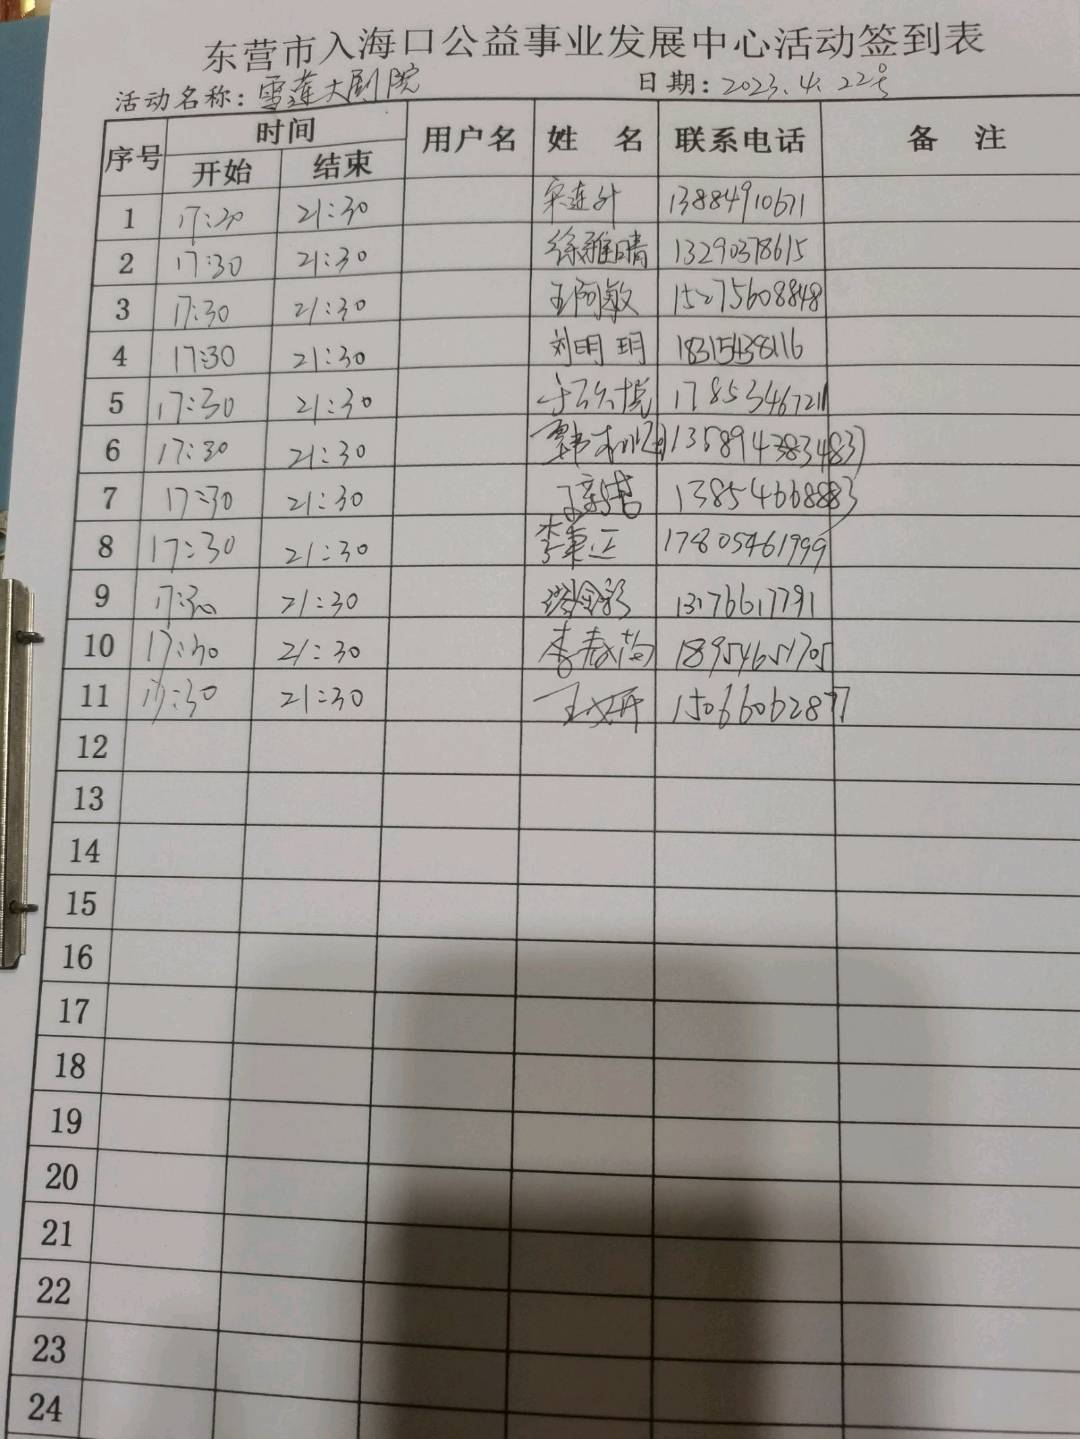 东营市入海口公益事业发展中心活动签到表
活动名称：雪莲大剧院 日期：2023.4.22号
序号 时间 用户名 姓名 联系电话 备注
开始 结束
1 17:30 21:30 13884910671
2 17:30 21:30 徐雅晴 13290378615
3 17:30 21:30 王阿敏 15275608848
4 17:30 21:30 刘明玥 18315438116
5 17:30 21:30 17853467211
6 17:30 21:30
7 17:30 21:30 13854668883
8 17:30 21:30 李秉正 17805461999
9 17:30 21:30 13176617791
10 17:30 21:30 李春茵 18954651705
11 17:30 21:30 王妍 15066062877
12
13
14
15
16
17
18
19
20
21
22
23
24